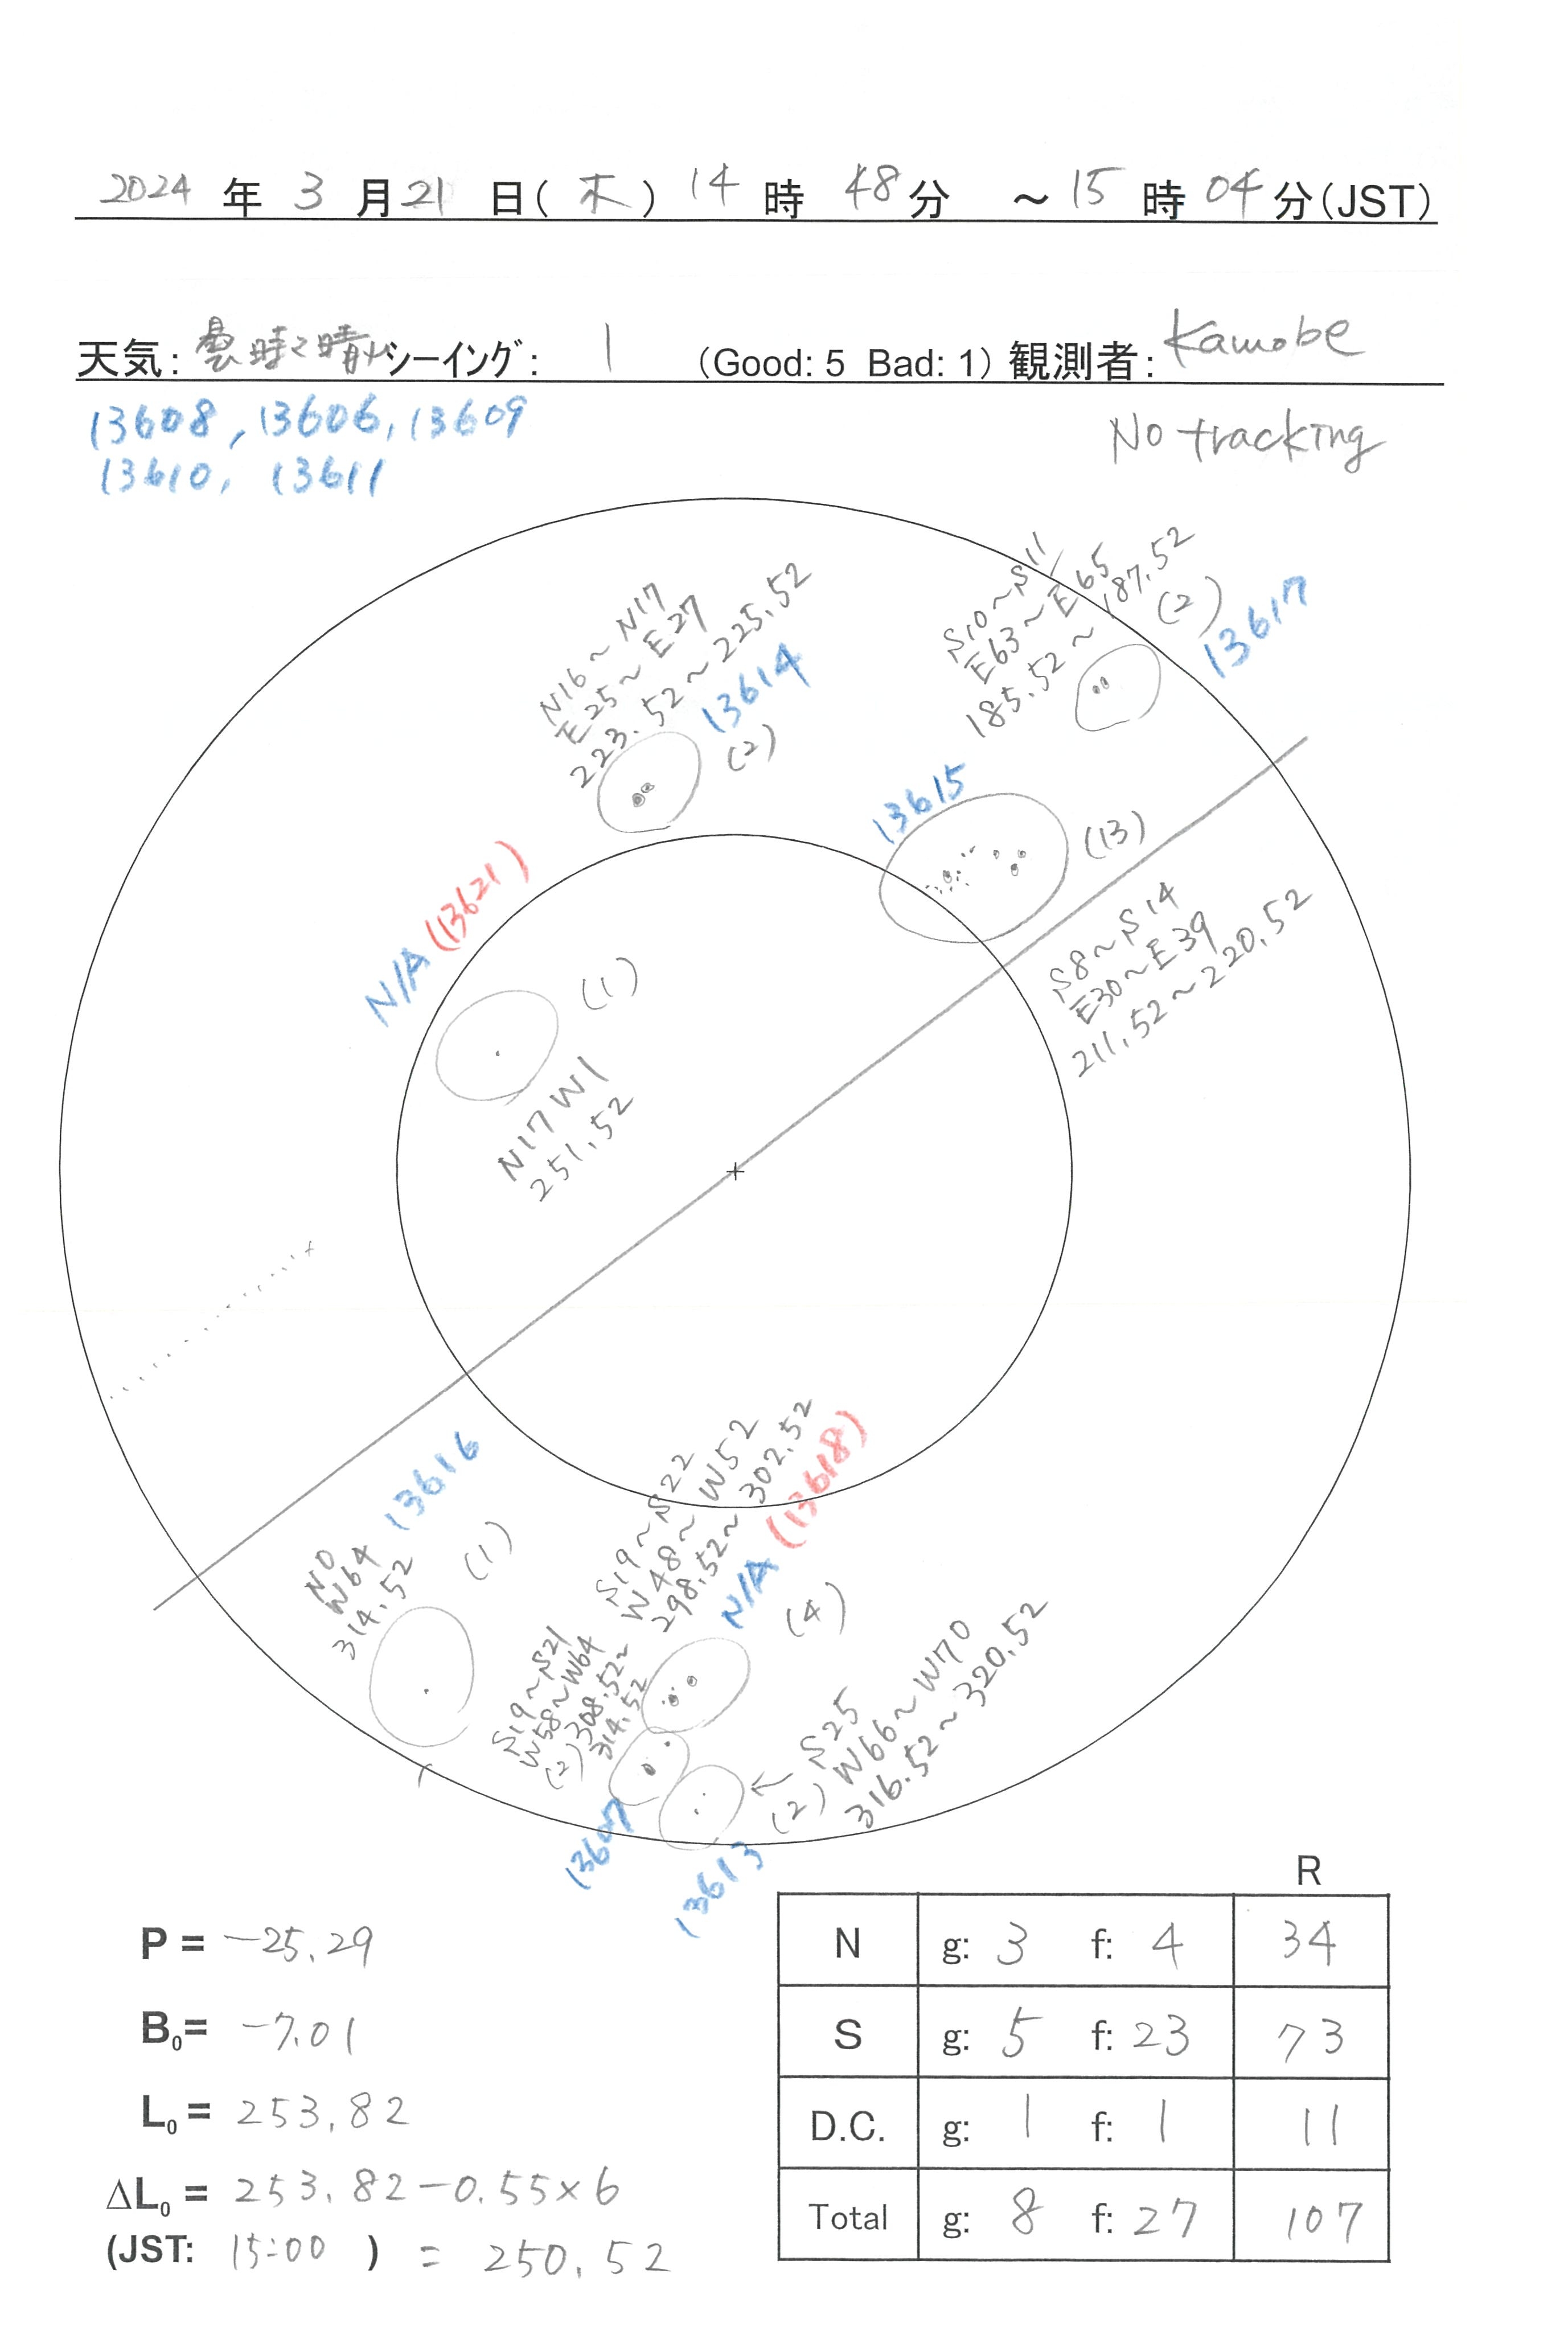 2024 年 3 月 21 日(木) 14 時 48 分 ～ 15 時 04 分(JST)
天気: 曇時々晴れ シーイング: 1 (Good: 5 Bad: 1) 観測者: Kamobe
13608, 13606, 13609
13610, 13611
No tracking
N16～N17
E25～E27
223.52～225.52
13614
(2)
S10～S11
E63～E65
185.52～187.52
(2)
13617
13615
(13)
S8～S14
E30～E39
211.52～220.52
N/A (13621)
(1)
N17 W1
251.52
13616
N0
W64
314.52
(1)
S19～S22
W48～W52
298.52～302.52
N/A (13618)
(4)
S19～S21
W58～W64
(2) 308.52～
314.52
13607
S25
(2) W66～W70
316.52～320.52
13613
P = -25.29
B₀= -7.01
L₀ = 253.82
ΔL₀ = 253.82-0.55×6
(JST: 15:00 ) = 250.52
R
N g: 3 f: 4 34
S g: 5 f: 23 73
D.C. g: 1 f: 1 11
Total g: 8 f: 27 107